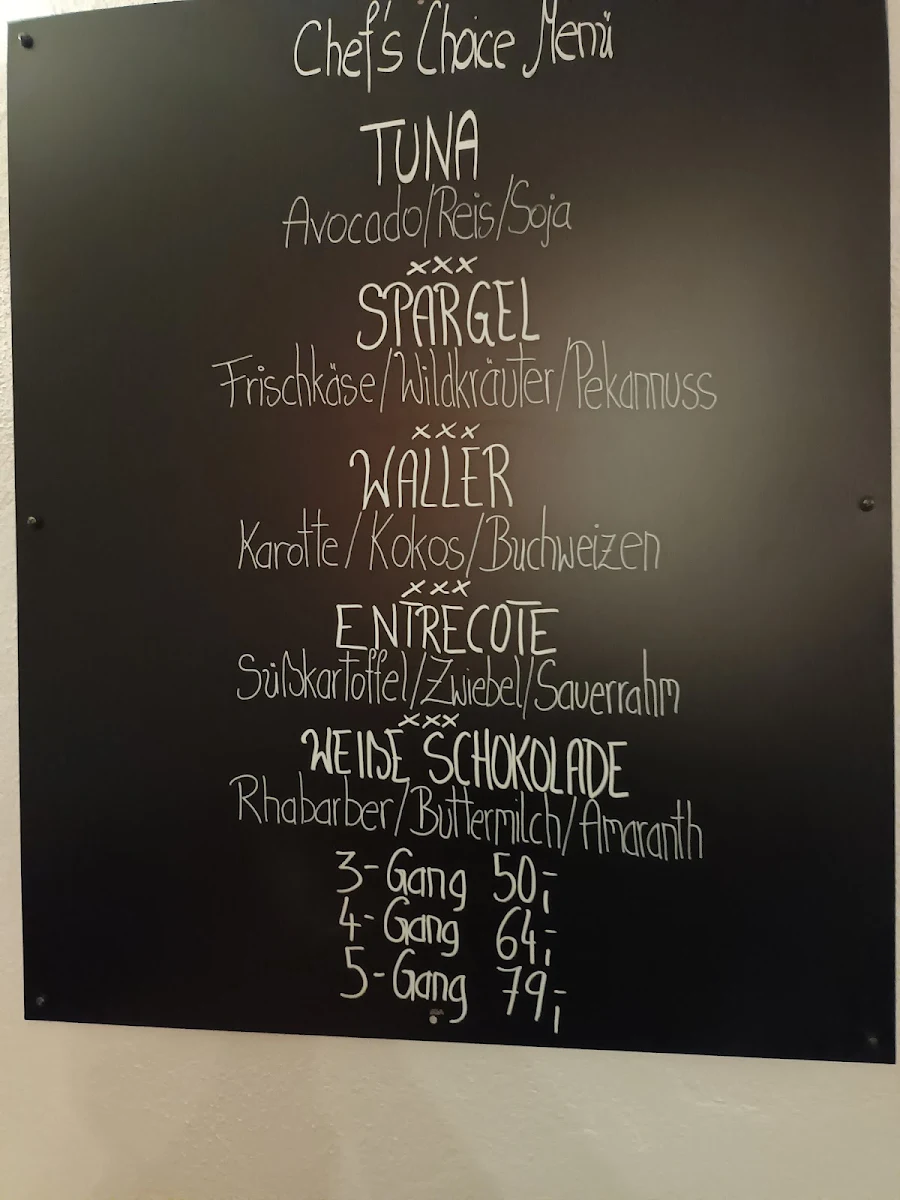 Chef's Choice Menü
TUNA
Avocado/Reis/Soja
xxx
SPARGEL
Frischkäse/Wildkräuter/Pekannuss
xxx
WALLER
Karotte/Kokos/Buchweizen
xxx
ENTRECOTE
Süßkartoffel/Zwiebel/Sauerrahm
xxx
WEIßE SCHOKOLADE
Rhabarber/Buttermilch/Amaranth
3-Gang 50,-
4-Gang 64,-
5-Gang 79,-